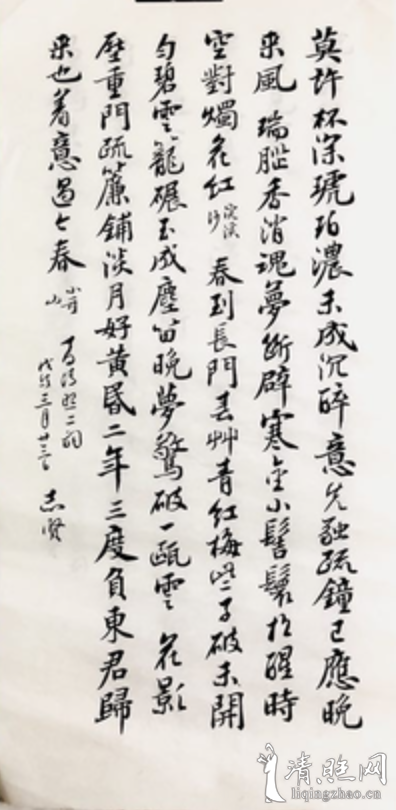 莫許杯深琥珀濃未成沉醉意先融疏鐘已應晚
来風 瑞腦香消魂夢斷辟寒金小髻鬟松醒時
空對燭花紅 浣溪沙 春到長門春艸青紅梅些子破未開
勻碧雲籠碾玉成塵留晚夢驚破一甌雲 花影
壓重門疏簾鋪淡月好黃昏二年三度負東君歸
来也著意過今春 小重山 李清照二詞
戊戌三月廿三 志賢
清照网
liqingzhao.cn